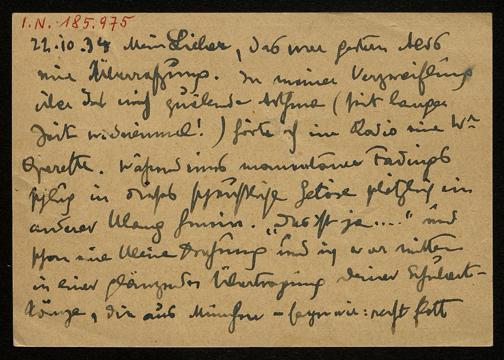 I.N. 185.975
22.10.34 Mein Lieber, das war gestern Abds
eine Überraschung. In meiner Verzweiflung
über das mich quälende Asthma (seit langer
Zeit wiedereinmal!) hörte ich im Radio eine Wr
Operette. Während eines momentanen Fadings
schlug in dieses scheußliche Getöse plötzlich ein
anderer Klang herein. „Das ist ja....." und
schon eine kleine Drehung und ich war mitten
in einer glänzenden Übertragung Deiner Schubert-
Tänze, die aus München – : recht flott